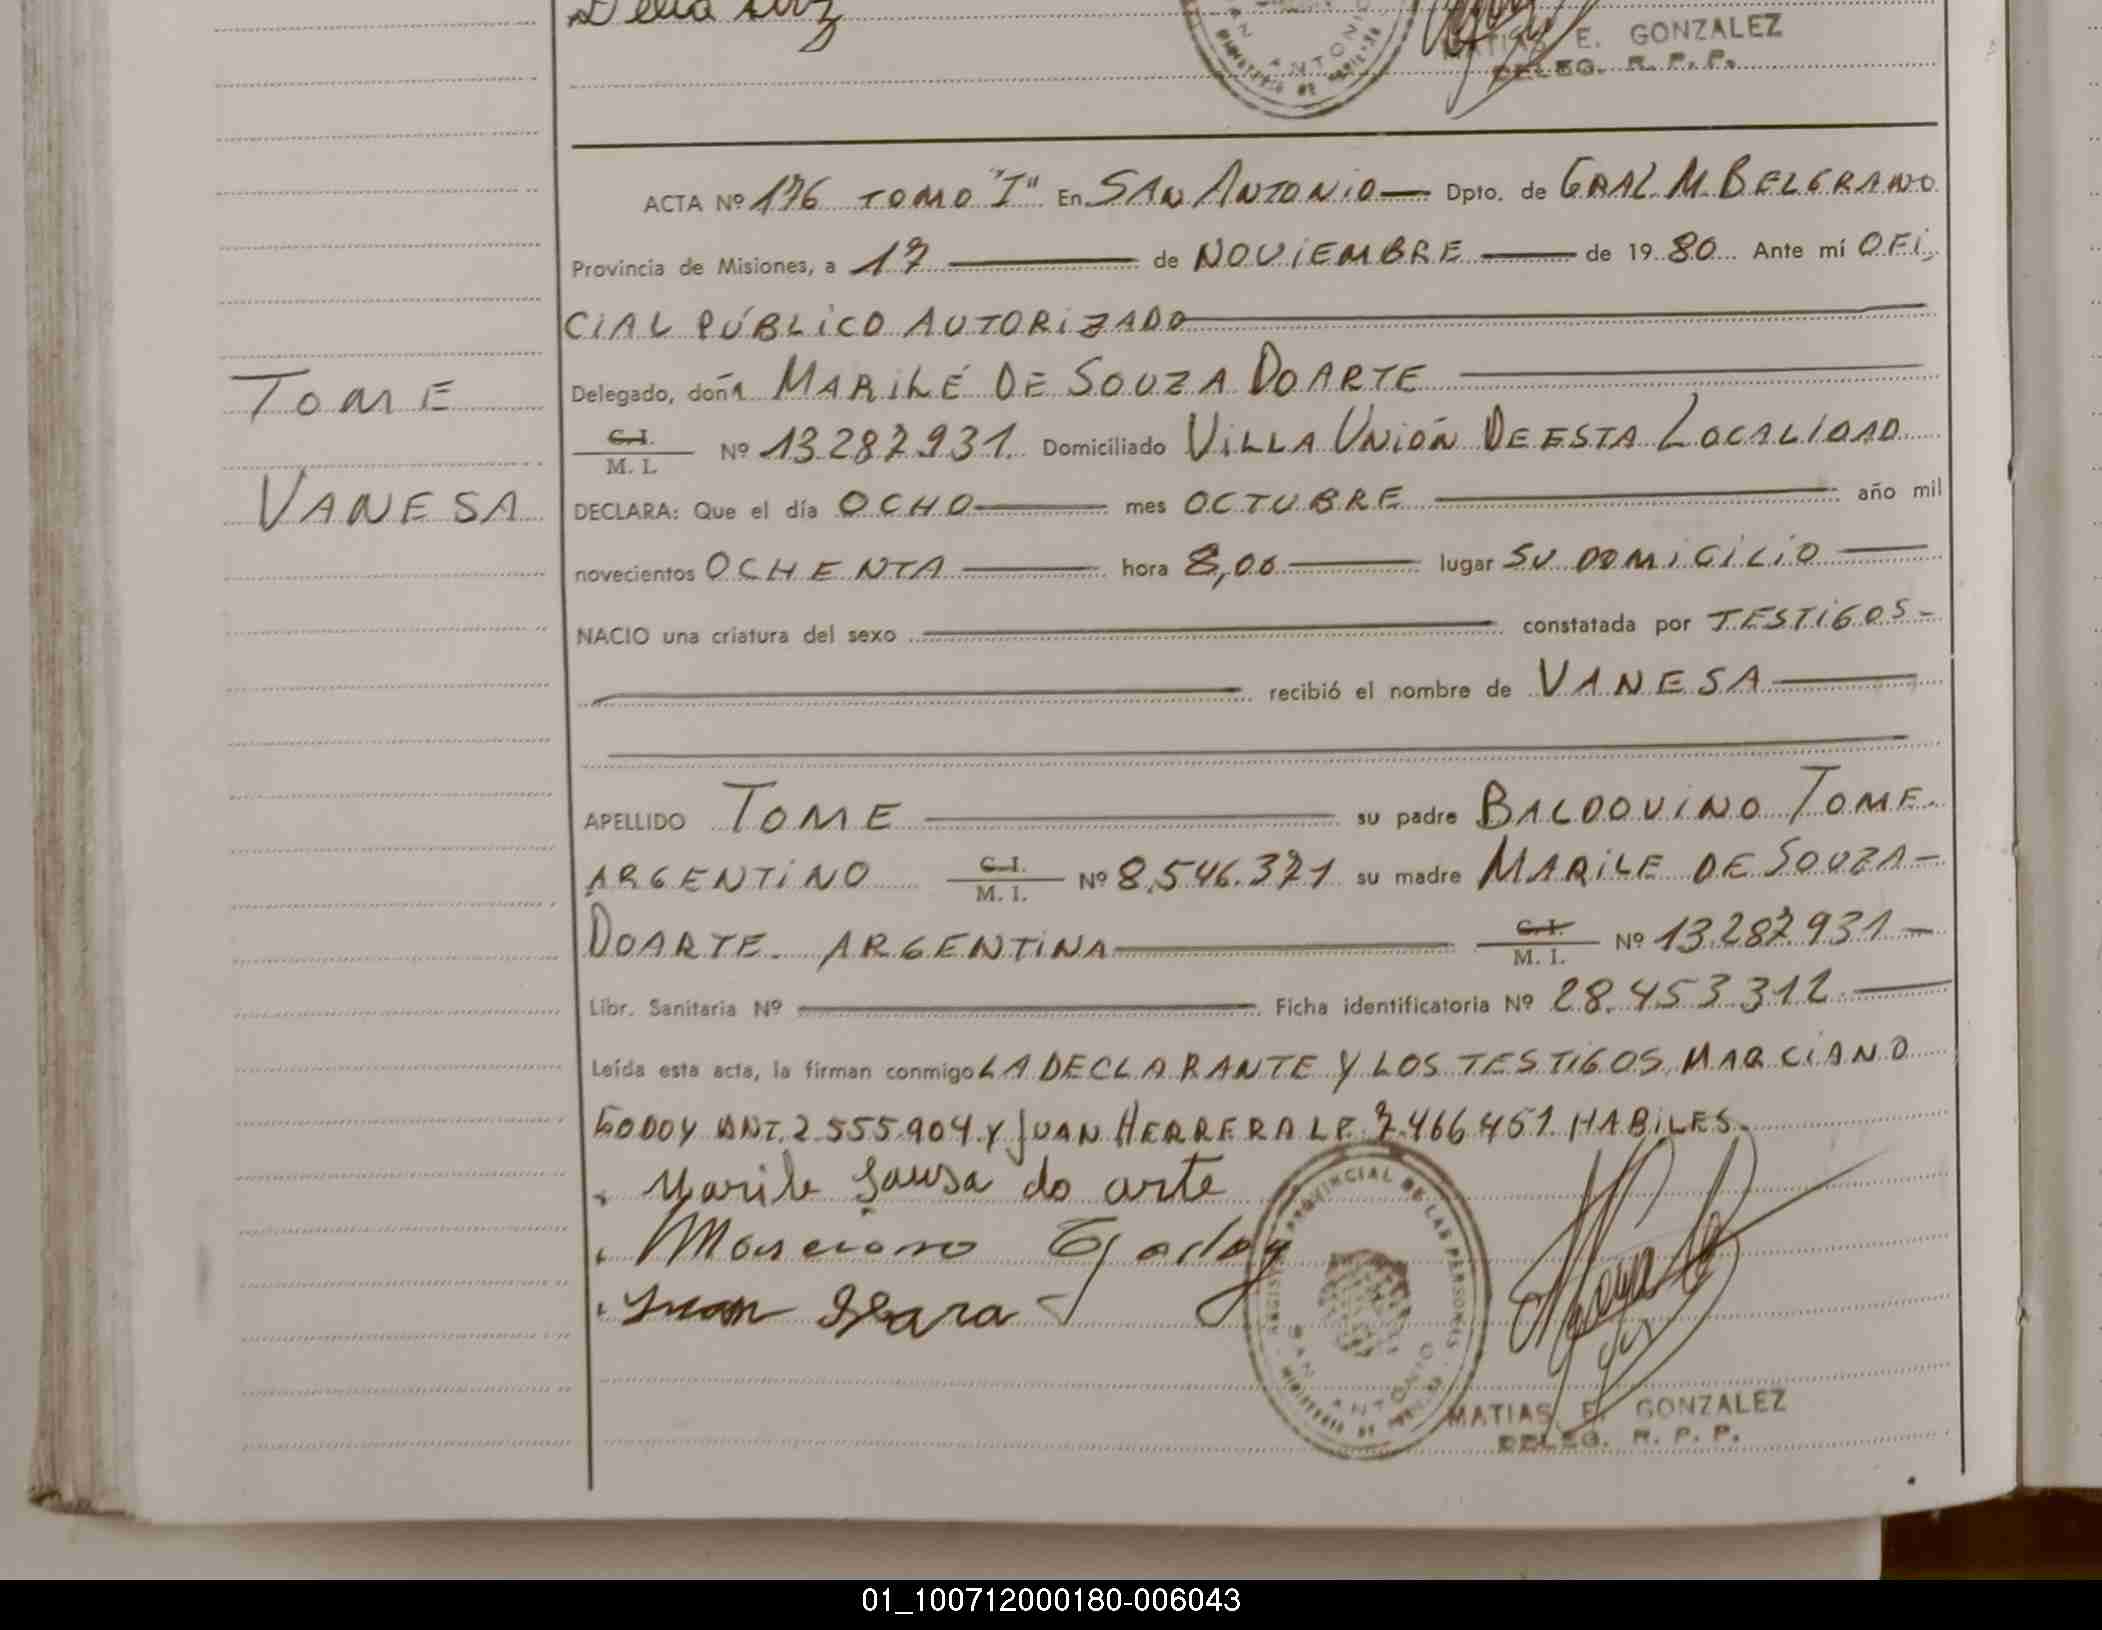 Delia
SAN ANTONIO
MINISTERIO DE
MATIAS E. GONZALEZ
DELEG. R. P. P.
ACTA Nº 176 TOMO "I" En SAN ANTONIO — Dpto. de GRAL M. BELGRANO
Provincia de Misiones, a 17 — de NOVIEMBRE — de 19 80 Ante mí OFI
CIAL PÚBLICO AUTORIZADO
TOME
Delegado, doña MARILÉ DE SOUZA DOARTE
C.I.
M. I. Nº 13.287.931. Domiciliado VILLA UNIÓN DE ESTA LOCALIDAD
VANESA
DECLARA: Que el día OCHO — mes OCTUBRE — año mil
novecientos OCHENTA — hora 8,00 — lugar SU DOMICILIO —
NACIO una criatura del sexo — constatada por TESTIGOS -
— recibió el nombre de VANESA —
APELLIDO TOME — su padre BALDOUINO TOME -
ARGENTINO C.I.
M. I. Nº 8.546.371 su madre MARILE DE SOUZA -
DOARTE. ARGENTINA — C.I.
M. I. Nº 13.287.931 -
Libr. Sanitaria Nº — Ficha identificatoria Nº 28.453.312 —
Leída esta acta, la firman conmigo LA DECLARANTE Y LOS TESTIGOS MARCIANO
GODOY DNI. 2.555.904 Y JUAN HERRERA LE. 7.466.451. HABILES.
Marile Sausa do arte
Marciano Godoy
Juan
REGISTRO PROVINCIAL DE LAS PERSONAS
SAN ANTONIO
MINISTERIO DE
MATIAS E. GONZALEZ
DELEG. R. P. P.
01_100712000180-006043